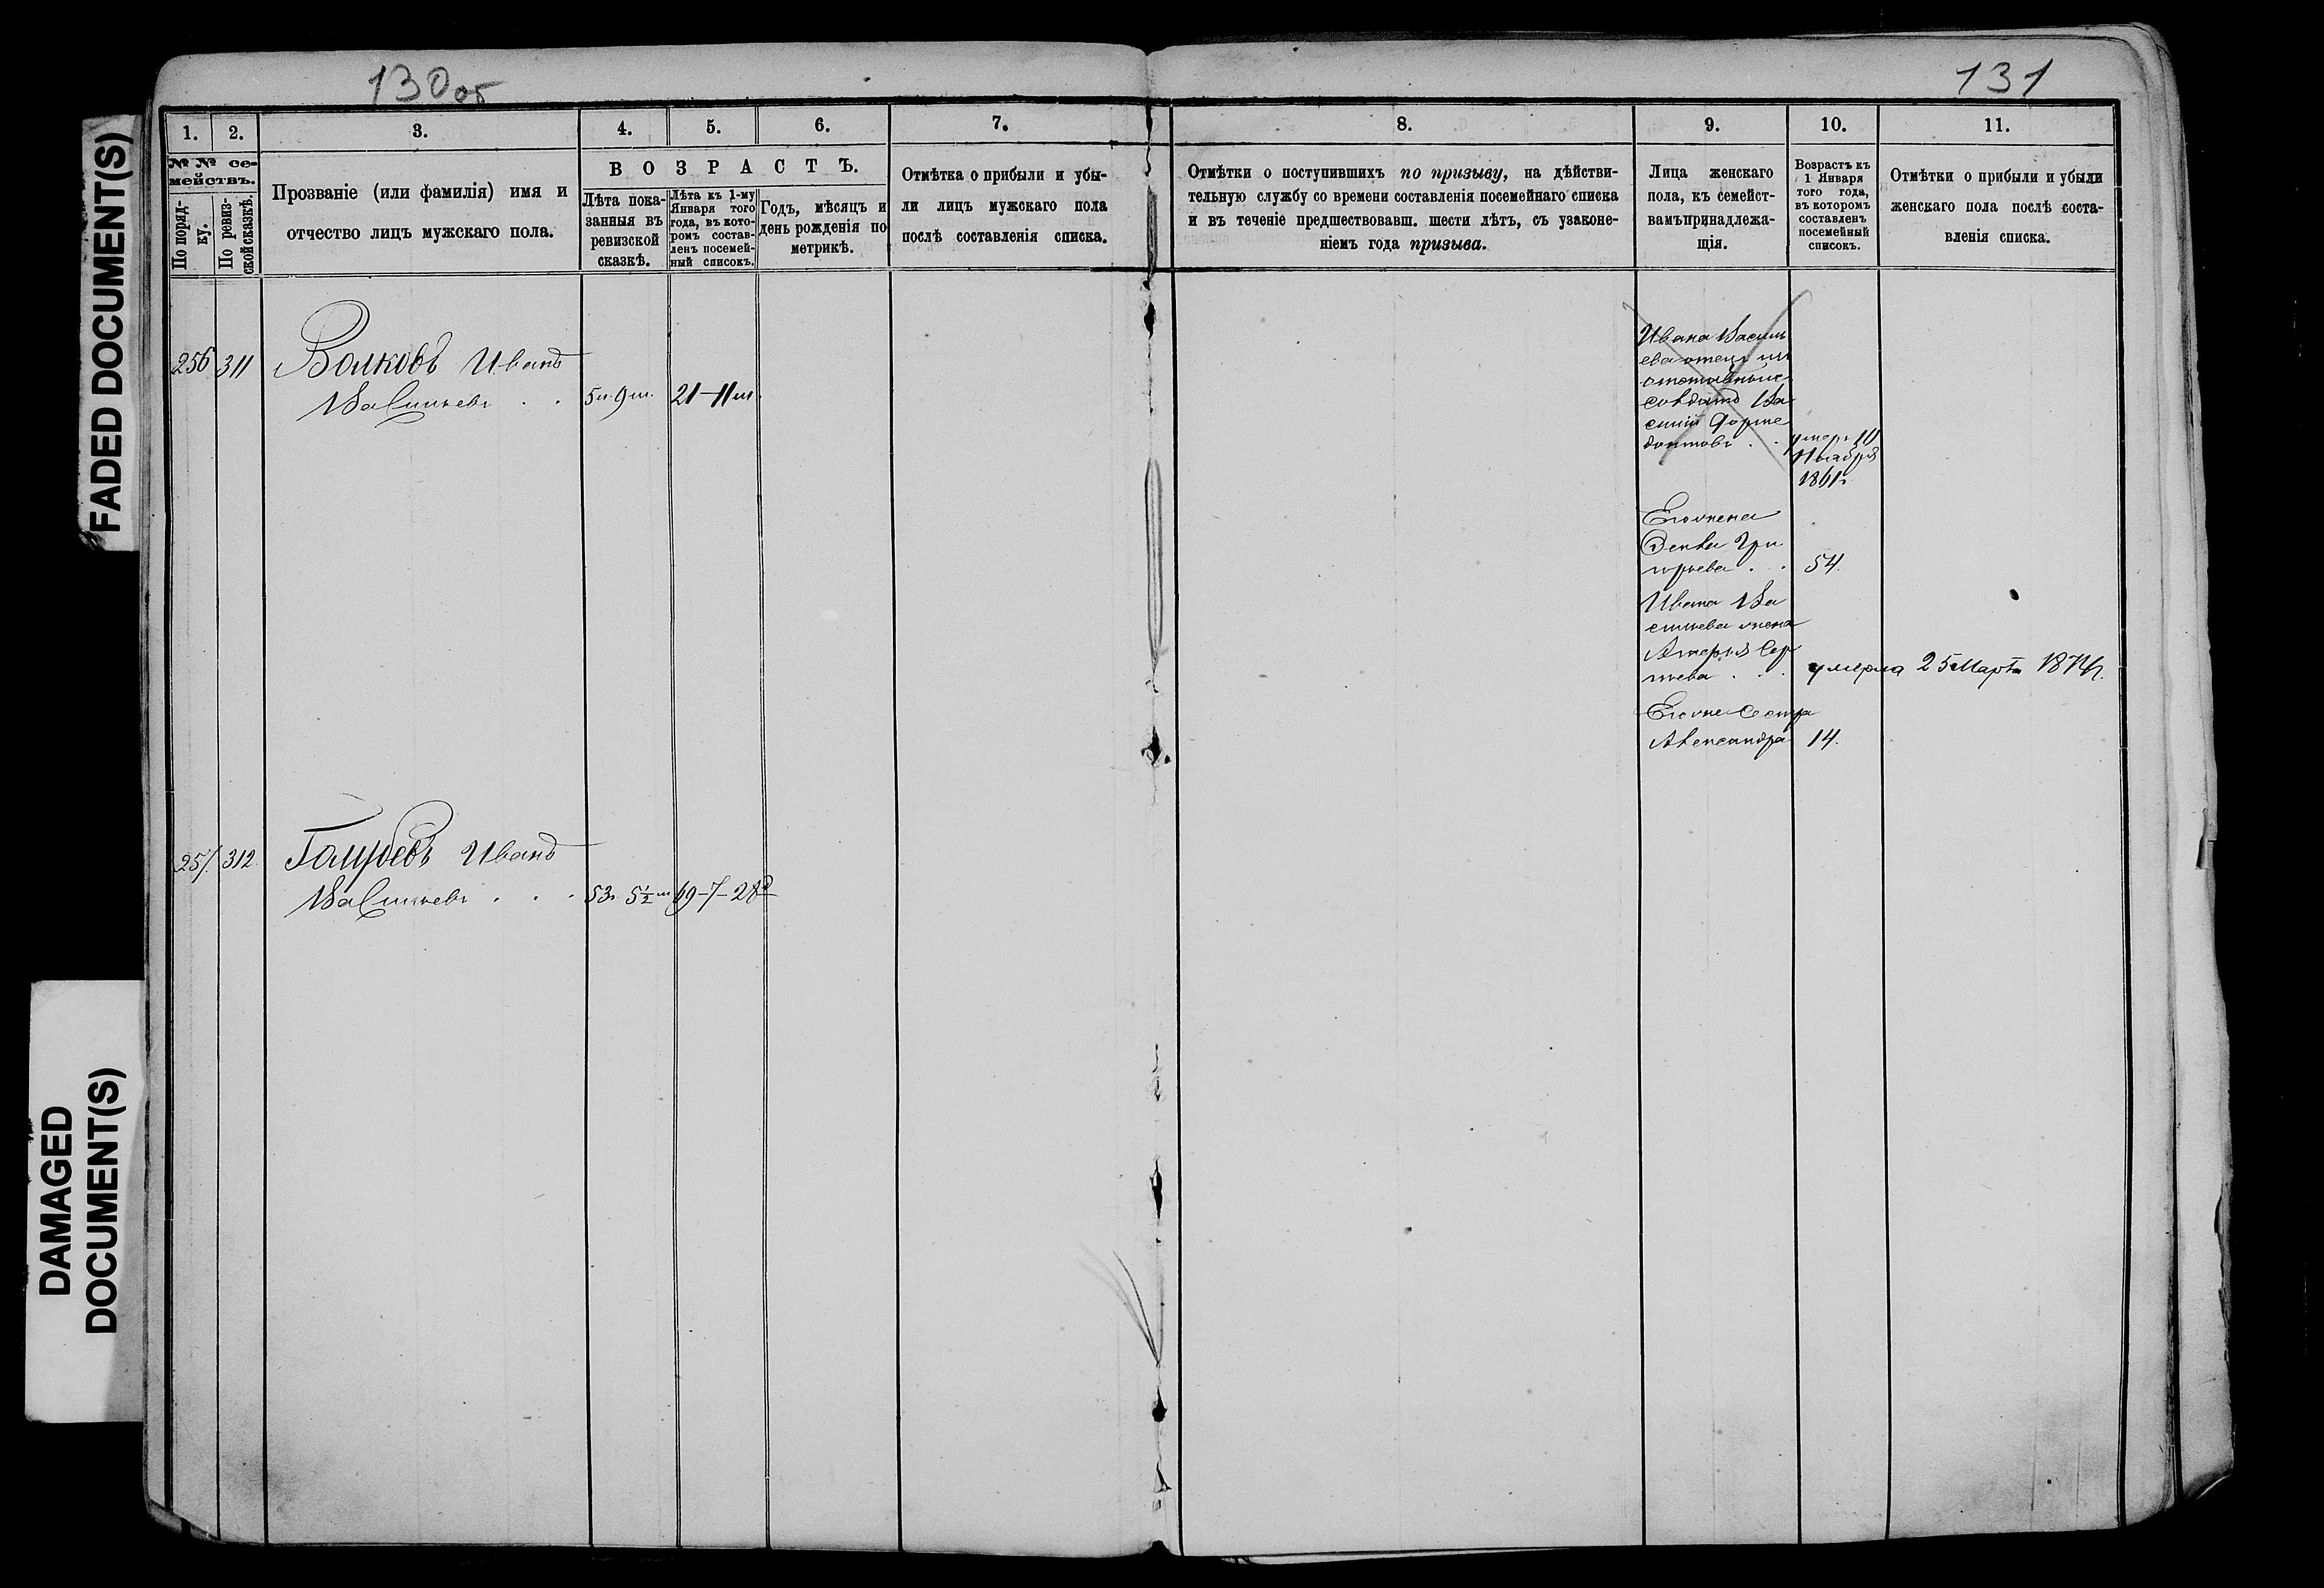 FADED DOCUMENT(S)
DAMAGED
DOCUMENT(S)
130 об
131
1.
2.
3.
4.
5.
6.
7.
8.
9.
10.
11.
№ № се-
мействъ.
По поряд-
ку.
По ревиз-
ской сказкѣ.
Прозваніе (или фамилія) имя и
отчество лицъ мужскаго пола.
ВОЗРАСТЪ.
Лѣта пока-
занныя въ
ревизской
сказкѣ.
Лѣта къ 1-му
Января того
года, въ кото-
ромъ состав-
ленъ посемей-
ный списокъ.
Годъ, мѣсяцъ и
день рожденія по
метрикѣ.
Отмѣтка о прибыли и убы-
ли лицъ мужскаго пола
послѣ составленія списка.
Отмѣтки о поступившихъ по призыву, на дѣйстви-
тельную службу со времени составленія посемейнаго списка
и въ теченіе предшествовавш. шести лѣтъ, съ узаконе-
ніемъ года призыва.
Лица женскаго
пола, къ семейст-
вамъ принадлежа-
щія.
Возрастъ къ
1 Января
того года,
въ которомъ
составленъ
посемейный
списокъ.
Отмѣтки о прибыли и убыли
женскаго пола послѣ соста-
вленія списка.
256 311 Волковъ Иванъ
Васильевъ . . 5 л. 9 м. 21-11 м.
Ивана Василь
ева отецъ
солдатъ Ва
силій
умеръ 10
Ноября
1861 г.
Его жена
Гри
горьева . . 54.
Ивана Ва
сильева жена
Сер
гѣева . . . умерла 25 Марта
Его же сестра
Александра 14.
257. 312 Иванъ
Васильевъ . . . 53 г. 5½ м 69-7-28 д